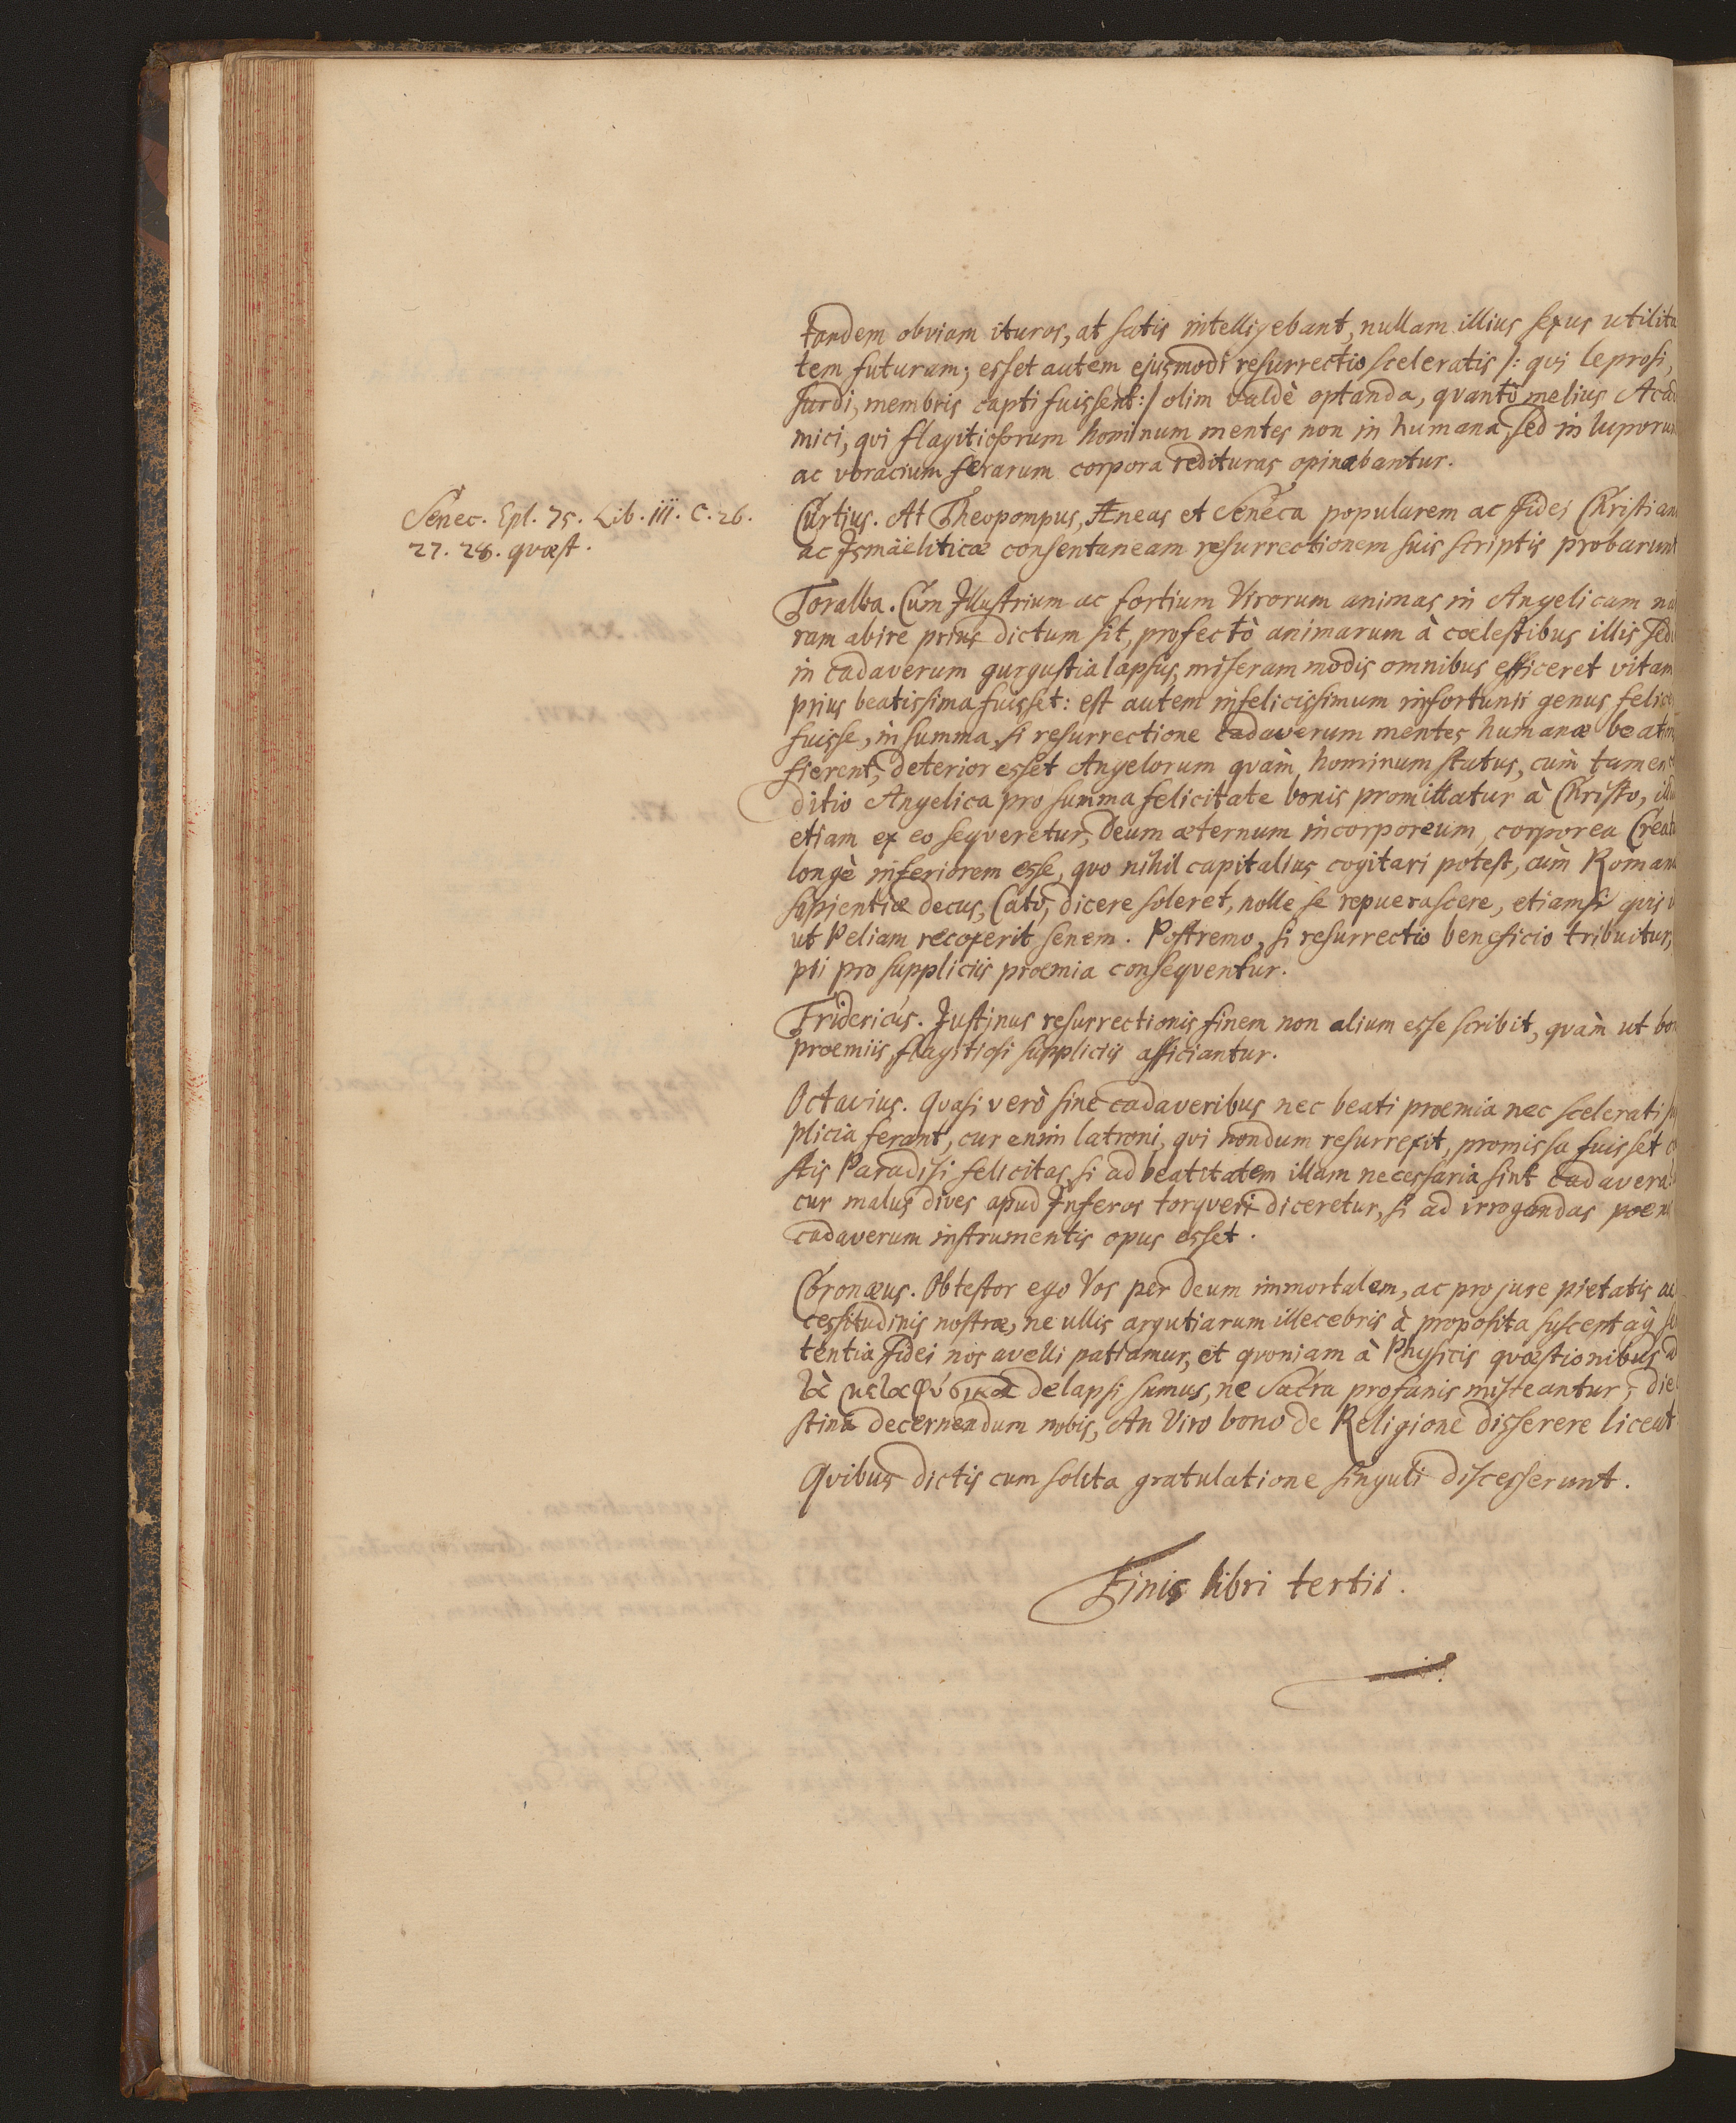 tandem obviam ituros, at satis intelligebant, nullam illius sexus utilita
tem futuram; esset autem ejusmodi resurrectio sceleratis /: qvi leprosi,
surdi, membris capti fuissent :/ olim valdè optanda, qvantò melius Acad
mici, qvi flagitiosorum hominum mentes non in humana, sed in luporum
ac voracium ferarum corpora redituras opinabantur.
Senec. Epl. 75. Lib. III. C. 26.
27. 28. qvæst.
Curtius. At Theopompus, Æneas et Seneca popularem ac Fidei Christian
ac Ismäeliticæ consentaneam resurrectionem suis scriptis probarunt
Toralba. Cum Illustrium ac fortium Virorum animas in Angelicam na
ram abire prius dictum sit, profectò animarum à cœlestibus illis sedi
in cadaverum gurgustia lapsus, miseram modis omnibus efficeret vitam
prius beatissima fuisset: est autem infelicissimum infortunii genus felice
fuisse, in summa, si resurrectione cadaverum mentes humanæ beatim
fierent, deterior esset Angelorum qvàm hominum status, cùm tamen
ditio Angelica pro summa felicitate bonis promittatur à Christo, illu
etiam ex eo seqveretur, Deum æternum incorporeum, corporea Creatu
longè inferiorem esse, qvo nihil capitalius cogitari potest, cùm Roman
sapientiæ decus, Cato, dicere soleret, nolle se repuerascere, etiamsi qvis
ut Peliam recoxerit senem. Postremo, si resurrectio beneficio tribuitur,
pii pro suppliciis præmia conseqventur.
Fridericus. Justinus resurrectionis finem non alium esse scribit, qvàm ut bon
præmiis, flagitiosi suppliciis afficiantur.
Octavius. Qvasi verò sine cadaveribus nec beati præmia nec scelerati su
plicia ferant, cur enim latroni, qvi nondum resurrexit, promissa fuisset
stis Paradisi felicitas, si ad beatitatem illam necessaria sint cadavera:
cur malus dives apud Inferos torqveri diceretur, si ad irrogandas poen
cadaverum instrumentis opus esset.
Coronæus. Obtestor ego Vos per Deum immortalem, ac pro jure pietatis ac
cessitudinis nostræ, ne ullis argutiarum illecebris à proposita susceptaq; se
tentia Fidei nos avelli patiamur, et qvoniam à Physicis qvæstionibus ad
τὰ μεταφύσικα delapsi sumus, ne Sacra profanis misceantur, die
stina decernendum nobis, An Viro bono de Religione disserere liceat
Qvibus dictis cum solita gratulatione singuli discesserunt.
Finis libri tertii.